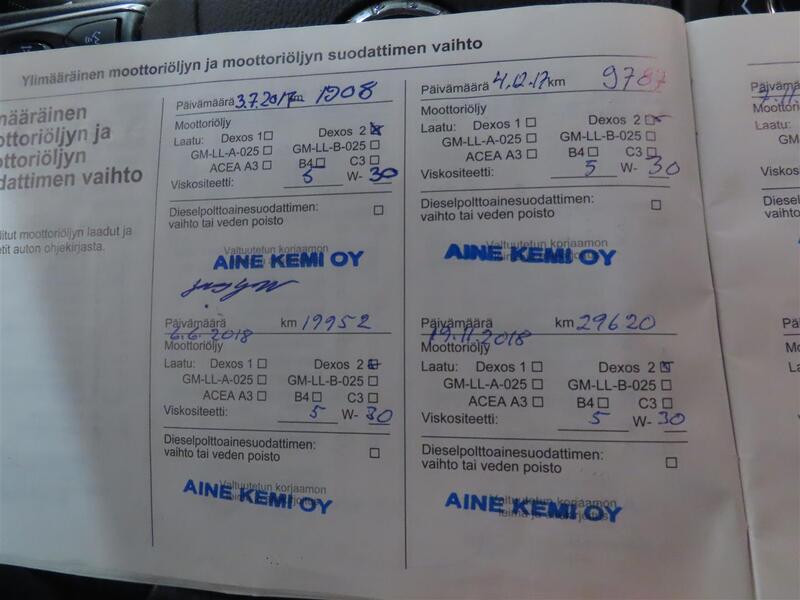 Ylimääräinen moottoriöljyn ja moottoriöljyn suodattimen vaihto
määräinen
ottoriöljyn ja
ottoriöljyn
dattimen vaihto
litut moottoriöljyn laadut ja
etit auton ohjekirjasta.
Päivämäärä 3.7.2017 km 1908
Moottoriöljy
Laatu: Dexos 1 Dexos 2
GM-LL-A-025 GM-LL-B-025
ACEA A3 B4 C3
Viskositeetti: 5 W- 30
Dieselpolttoainesuodattimen:
vaihto tai veden poisto
Valtuutetun korjaamon
AINE KEMI OY
Päivämäärä 4.12.17 km 9787
Moottoriöljy
Laatu: Dexos 1 Dexos 2
GM-LL-A-025 GM-LL-B-025
ACEA A3 B4 C3
Viskositeetti: 5 W- 30
Dieselpolttoainesuodattimen:
vaihto tai veden poisto
Valtuutetun korjaamon
AINE KEMI OY
Päivämäärä km 19952
6.6.2018
Moottoriöljy
Laatu: Dexos 1 Dexos 2
GM-LL-A-025 GM-LL-B-025
ACEA A3 B4 C3
Viskositeetti: 5 W- 30
Dieselpolttoainesuodattimen:
vaihto tai veden poisto
Valtuutetun korjaamon
AINE KEMI OY
Päivämäärä km 29620
19.11.2018
Moottoriöljy
Laatu: Dexos 1 Dexos 2
GM-LL-A-025 GM-LL-B-025
ACEA A3 B4 C3
Viskositeetti: 5 W- 30
Dieselpolttoainesuodattimen:
vaihto tai veden poisto
Valtuutetun korjaamon
AINE KEMI OY
Päivämä
Moottori
Laatu:
GM
Visko
Diesel
vaihto
Pä
Mo
La
Vis
Die
vai